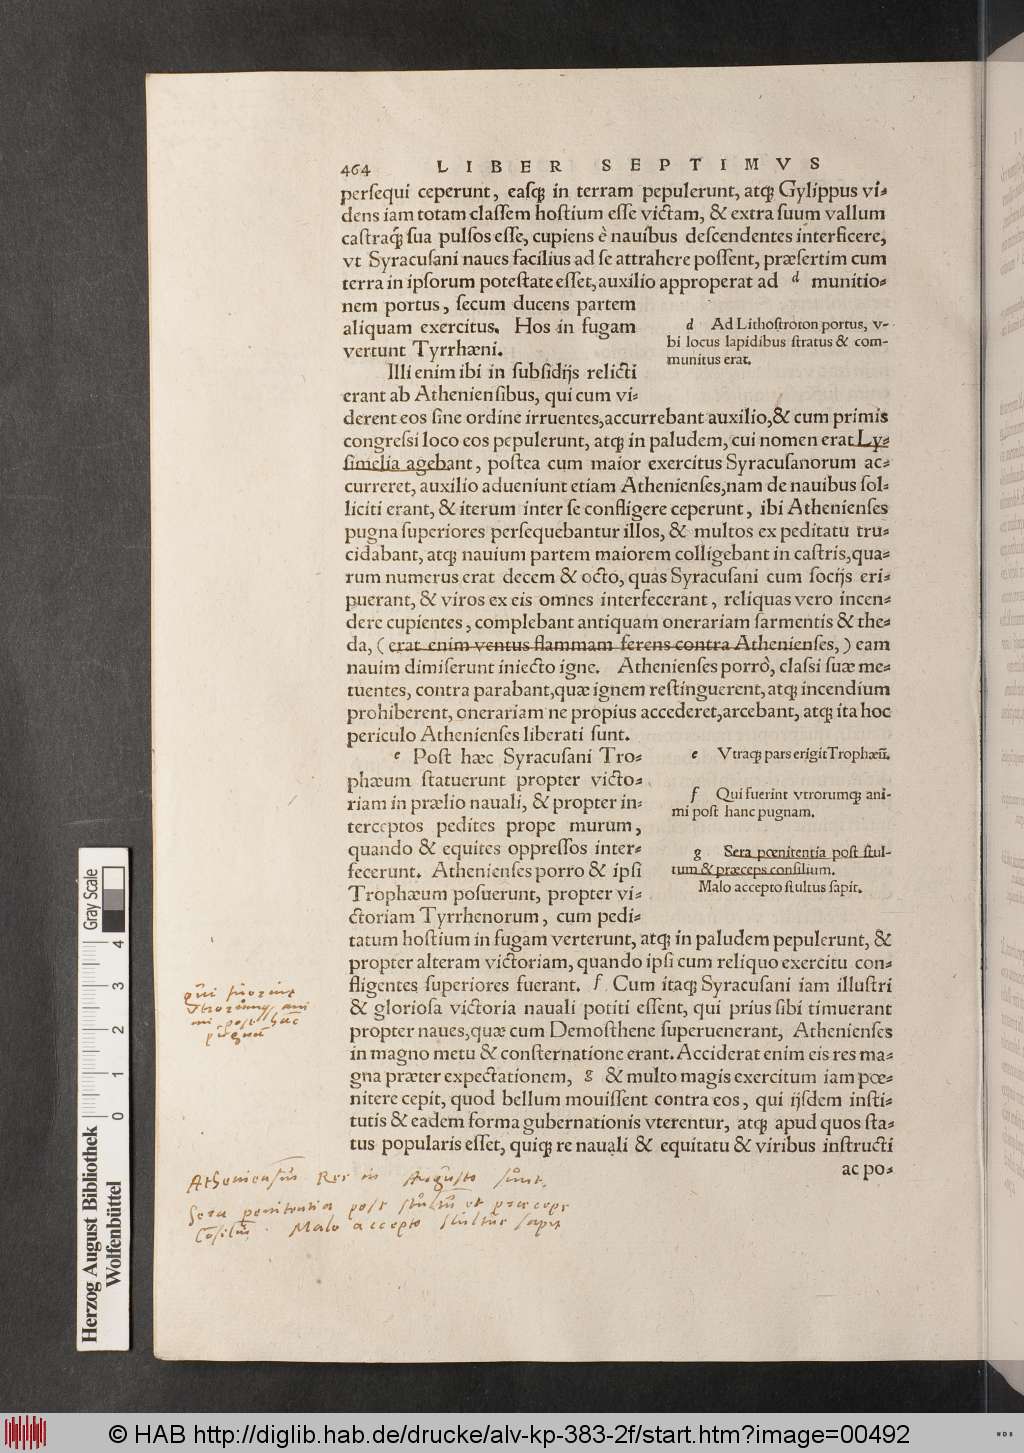 464 LIBER SEPTIMVS
persequi ceperunt, easq́; in terram pepulerunt, atq; Gylippus vi-
dens iam totam classem hostium esse victam, & extra suum vallum
castraq́; sua pulsos esse, cupiens è nauibus descendentes interficere,
vt Syracusani naues facilius ad se attrahere possent, præsertim cum
terra in ipsorum potestate esset, auxilio approperat ad d munitio-
nem portus, secum ducens partem
aliquam exercitus. Hos in fugam
vertunt Tyrrhæni.
d Ad Lithostroton portus, v-
bi locus lapidibus stratus & com-
munitus erat.
Illi enim ibi in subsidijs relicti
erant ab Atheniensibus, qui cum vi-
derent eos sine ordine irruentes, accurrebant auxilio, & cum primis
congressi loco eos pepulerunt, atq; in paludem, cui nomen erat Ly-
simelia agebant, postea cum maior exercitus Syracusanorum ac-
curreret, auxilio adueniunt etiam Athenienses, nam de nauibus sol-
liciti erant, & iterum inter se confligere ceperunt, ibi Athenienses
pugna superiores persequebantur illos, & multos ex peditatu tru-
cidabant, atq; nauium partem maiorem colligebant in castris, qua-
rum numerus erat decem & octo, quas Syracusani cum socijs eri-
puerant, & viros ex eis omnes interfecerant, reliquas vero incen-
dere cupientes, complebant antiquam onerariam sarmentis & the-
da, (erat enim ventus flammam ferens contra Athenienses,) eam
nauim dimiserunt iniecto igne. Athenienses porrò, classi suæ me-
tuentes, contra parabant, quæ ignem restinguerent, atq; incendium
prohiberent, onerariam ne propius accederet, arcebant, atq; ita hoc
periculo Athenienses liberati sunt.
e Post hæc Syracusani Tro-
phæum statuerunt propter victo-
riam in prælio nauali, & propter in-
terceptos pedites prope murum,
quando & equites oppressos inter-
fecerunt. Athenienses porro & ipsi
Trophæum posuerunt, propter vi-
ctoriam Tyrrhenorum, cum pedi-
e Vtraq; pars erigit Trophæū.
f Qui fuerint vtrorumq; ani-
mi post hanc pugnam.
g Sera pœnitentia post stul-
tum & præceps consilium.
Malo accepto stultus sapit.
tatum hostium in fugam verterunt, atq; in paludem pepulerunt, &
propter alteram victoriam, quando ipsi cum reliquo exercitu con-
fligentes superiores fuerant. f Cum itaq; Syracusani iam illustri
& gloriosa victoria nauali potiti essent, qui prius sibi timuerant
propter naues, quæ cum Demosthene superuenerant, Athenienses
in magno metu & consternatione erant. Acciderat enim eis res ma-
gna præter expectationem, g & multo magis exercitum iam pœ-
nitere cepit, quod bellum mouissent contra eos, qui ijsdem insti-
tutis & eadem forma gubernationis vterentur, atq; apud quos sta-
tus popularis esset, quiq; re nauali & equitatu & viribus instructi
ac po-
qui fuerint
vtrorumq; ani
mi post hāc
pugnā
Atheniensiū Res in Augusto sunt.
Sera penitentia post stultū et præceps
Cōsiliū. Malo accepto stultus sapit
Gray Scale
4 3 2 1 0
Herzog August Bibliothek
Wolfenbüttel
© HAB http://diglib.hab.de/drucke/alv-kp-383-2f/start.htm?image=00492